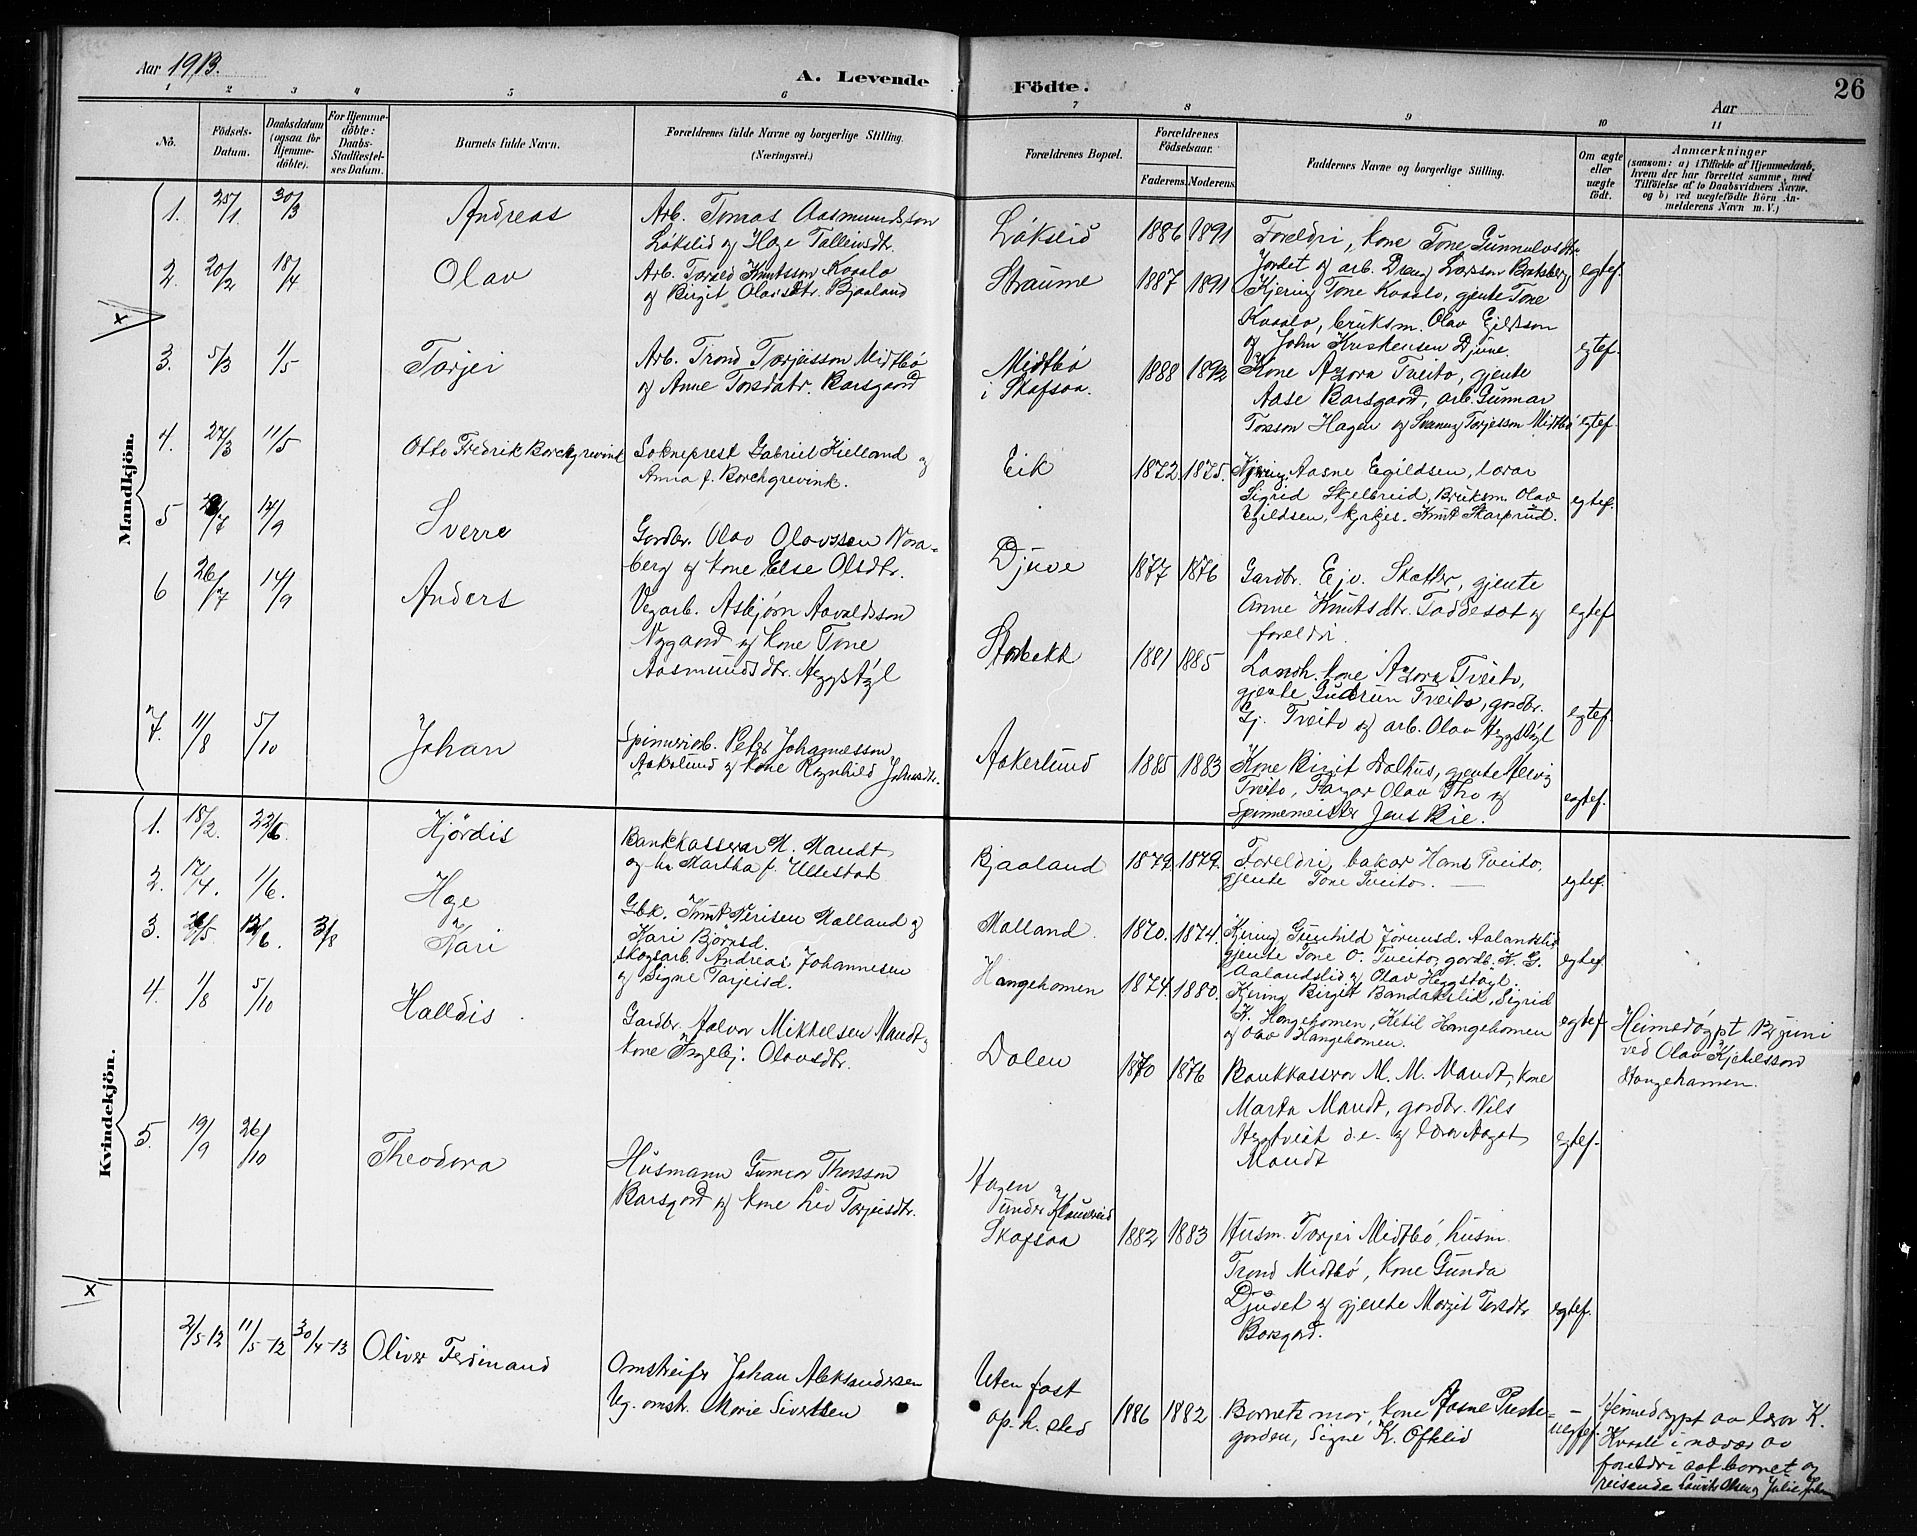 Aar 1913.
A. Levende
Födte.
26
Aar
1 2 3 4 5 6 7 8 9 10 11
No.
Födsels-
Datum.
Daabsdatum
(ogsaa for
Hjemme-
döbte).
For Hjemme-
döbte:
Daabs-
Stadfæstel-
ses Datum.
Barnets fulde Navn.
Forældrenes fulde Navne og borgerlige Stilling.
(Næringsvei.)
Forældrenes Bopæl.
Forældrenes
Födselsaar.
Faderens. Moderens.
Faddernes Navne og borgerlige Stilling.
Om ægte
eller
uægte
födt.
Anmærkninger
(saasom: a) i Tilfælde af Hjemmedaab,
hvem der har forrettet samme, med
Tilföielse af to Daabsvidners Navne,
og b) ved uægtefödte Börn An-
melderens Navn m. V.)
Mandkjön.
1. 25/1 30/3 Andreas
Arb. Tomas Aasmundsson
Lökslid og Hæge Talleivsdtr.
Lökslid 1886 1891
Foreldri, kone Tone Gunnulvsdtr.
Jordet og arb. Dreng Larsson Baksberg
egtef.
2. 20/2 18/4 Olav
Arb. Torleiv Knutsson Kvaalo
og Birgit Olavsdtr. Bjaaland
Straume 1887 1891
Kjering Tone Kvaalo, gjente Tone
Kvaalo, bruksm. Olav Egildsson
og John Kristensen Djuve.
egtef.
x
3. 5/3 1/5 Torjei
Arb. Trond Torjeisson Midtbö
og Anne Torsdatr. Barsgaard
Midtbö
i Skafsaa. 1888 1892
Kone Azora Tveito, gjente
Aase Barsgaard, arb. Gunnar
Torsson Hagen og Svenung Torjesson Midtbö
egtef.
4. 27/3 11/5 Otto Fredrik Borchgrevink
Sokneprest Gabriel Kielland og
Anna f. Borchgrevink.
Eik 1872. 1875.
Kjering Aasne Egildsen, lærar
Sigrid Skjelbreid, Bruksm. Olav
Egildsen, kyrkjes. Knut Skarprud.
egtef.
5 /7 14/9 Sverre
Gardbr. Olav Olavssen Nora-
berg og kone Else Olsdtr.
Djuve 1877 1876
Gardbr. Ejv. Skatter, gjente
Anne Knutsdtr. Faddesæt og
foreldri.
egtef
6 26/7 14/9 Anders
Vegarb. Asbjörn Aavaldsson
Nygaard og kone Tone
Aasmundsdtr. Heggstöyl
Storbekk 1881 1885
Landh. kone Azora Tveito,
gjente Gudrun Tveito, gardbr.
Gj. Tveito og arb. Olav Heggstöyl
egtef.
7. 11/8 5/10 Johan
Spinneriarb. Peter Johannesson
Aakerlund og kone Ragnhild Johnsdtr.
Aakerlund 1885 1883
Kone Birgit Dalhus, gjente Aslaug
Tveito, Farvar Olav Tho og
Spinnemeister Jens Bie.
egtef.
Kvindekjön.
1. 18/2. 22/6. Hjördis
Bankkasserar M. Mandt
og hu Martha f. Ullestad
Bjaaland 1879. 1879.
Foreldri, bakar Hans Tveito,
gjente Tone Tveito.
egtef.
2. 17/4. 1/6. Hæge
Gbk. Knut Nerisen Malland og
Kari Björnsd.
Malland. 1870. 1874.
Kjering Gunhild Jörunsd. Aalandslid
gjente Tone O. Tveito, gardb. K. G.
Aalandslid og Olav Heggstøyl.
egtef.
3. /5. /6. 3/8 Kari
Skogsarb. Andreas Johannesen
og Signe Tarjeisd.
Hangehomen 1874. 1880.
Kjering Birgit Bandakslid, Sigrid
K. Hangehomen, Ketil Hangehomen
og Olav Hangehomen.
egtef
Heimedöypt juni
ved Olav Kjetilsson
Hangehamen.
4. 1/8 5/10 Halldis
Gardbr. Aalvar Mikkelsen Mandt og
kone Ingebj. Olavsdtr.
Dalen 1870 1876
Bankkasserar M. M. Mandt, kone
Marta Mandt, gardbr. Nils
Heggtveit d.e. og lærar Aagot
Mandt
egtef-
5. 19/9 26/10 Theodora
Husmann Gunnar Thorsson
Barsgard og kone Liv Torjeisdtr.
Hagen
under
Skafsaa 1882 1883
Husm. Torjei Midtbö, husm.
Trond Midtbö, kone Gunda
Djuvet og gjente Margit Torsdtr
Barsgard.
egtef.
x
2/5-12 11/5-12 30/4-13 Oliver Ferdinand
Omstreifer Johan Aleksandersen
Ug. omstr. Marie Sivertsen
Uten fast
op. h. sted 1886 1882.
Barnets mor, kone Aasne Preste-
garden, Signe K. Ofteli
- uegtef.
Heimedøypt av lærar K.
Kvaale i nærvær av
foreldri aat barnet og
reisande Laurits Olsen og Julie Joh